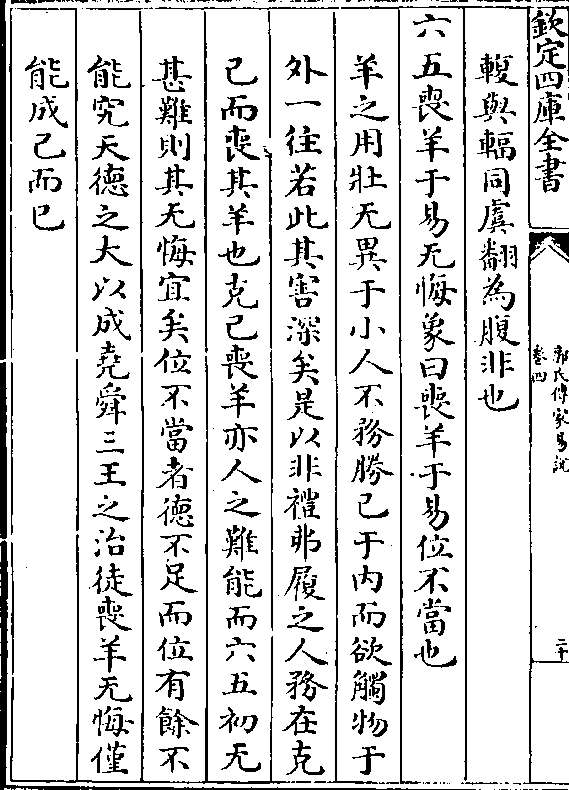 欽定四庫全書
郭氏傳家易説
卷四
二十
輹與輻同虞翻為腹非也
六五喪羊于易无悔象曰喪羊于易位不當也
羊之用壯无異于小人不務勝己于内而欲觸物于
外一往若此其害深矣是以非禮弗履之人務在克
己而喪其羊也克己喪羊亦人之難能而六五初无
甚難則其无悔宜矣位不當者德不足而位有餘不
能究天德之大以成堯舜三王之治徒喪羊无悔僅
能成己而已